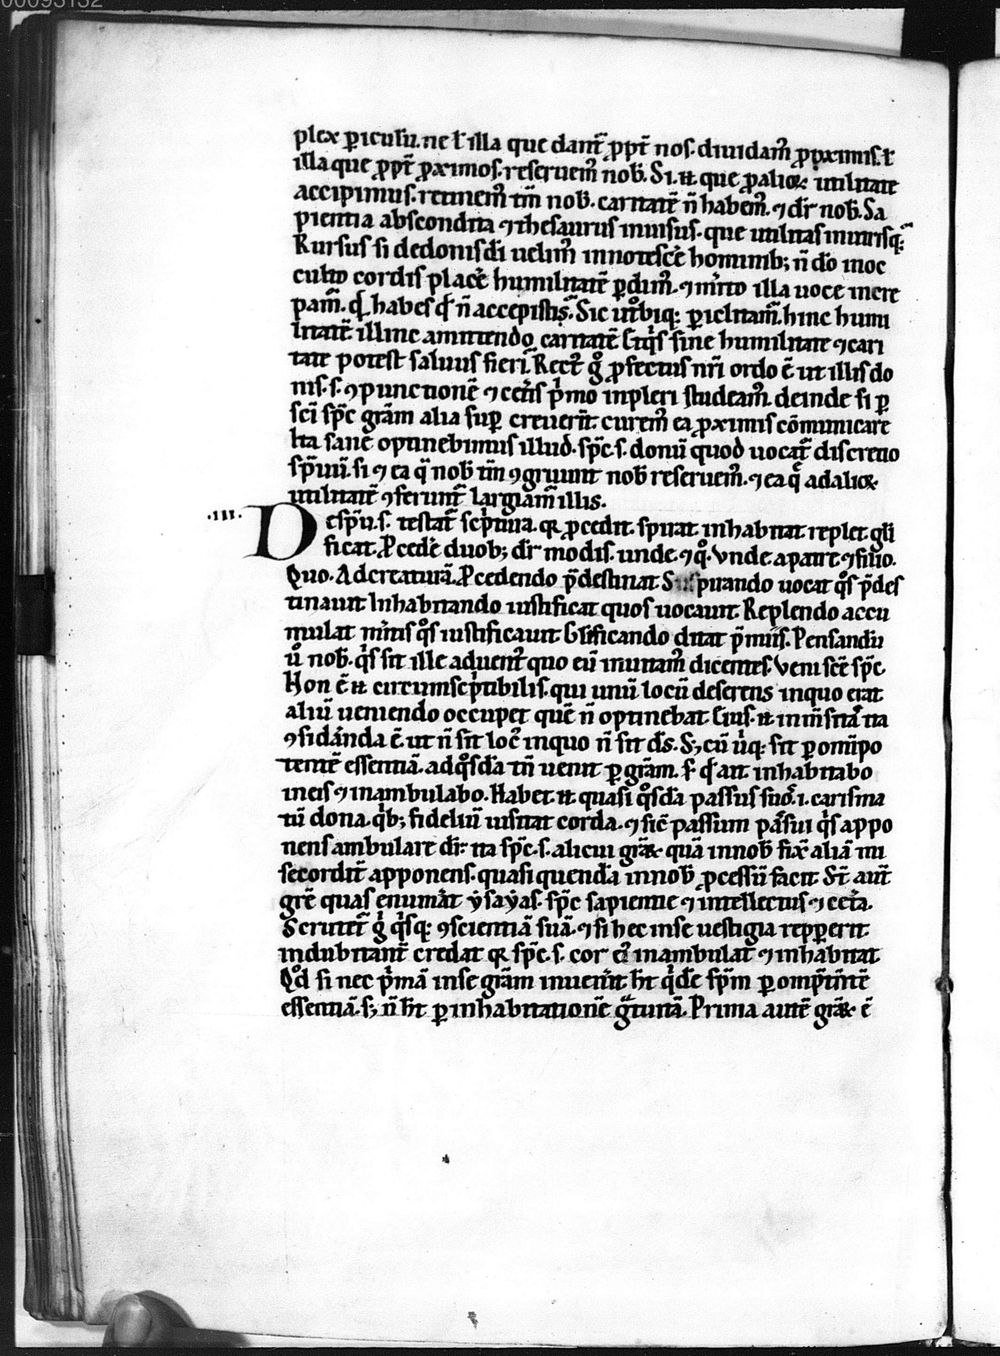 plex piculu. ne ł illa que dant̃ ꝓpt̃ nos. diuidam᷒ ꝓximis. ł
illa que ꝓpt̃ ꝓximos. reseruem᷒ nob̃. Si. n̄. que ꝓ alioꝝ utilitate
accipimus. retinem᷒ tm̄ nob̃. caritatē n̄ habem᷒. ⁊ dr̄ nob̃. Sa
pientia abscondita ⁊ thesaurus inuisus. que utilitas in utrisq;
Rursus si de donis di uelim᷒ innotescẽ hominib; n̄ dō in oc
culto cordis placẽ humilitatē ꝑdim᷒. ⁊ mito illa uoce incre
pam᷒. qd̄ habes qd̄ n̄ accepistis. Sic utͦbiq; ꝑiclitam᷒. hinc humi
litatē. illinc amittendo caritatē. Et qͥs sine humilitate ⁊ cari
tate potest saluus fieri. Rect᷒ gͦ ꝓfectus nr̄i ordo ē ut illis do
nis. s. ꝯpunctionē ⁊ cet̃is pͥmo inpleri studeam᷒. deinde si ꝑ
sc̄i sp̄c gr̄am alia suꝑ creuerīt. curem᷒ ea ꝓximis cōmunicare
Ita sane optinebimus illud. sp̄c. s. donū quod uocat᷒ discretio
sp̄uū. si ⁊ ea q̄ nob̃ tm̄ ꝯgruunt nob̃ reseruem᷒. ⁊ ea q̄ ad alioꝝ
utilitatē ꝯferunt᷒ largiam᷒ illis.
.iii. De sp̄u. s. testat᷒ sc̃ptura. qꝛ ꝓcedit. spirat. inhabitat replet. glͦi
ficat. Ꝓcedẽ duob; dr̄ modis. unde. ⁊ qͦ. Vnde. a patre ⁊ filio.
Quo. Ad creaturā. Ꝓcedendo p̄destinat Spirando uocat qͦs p̄des
tinauit Inhabitando iustificat quos uocauit. Replendo accu
mulat mͥtis qͦs iustificauit Glͦificando ditat p̄miis. Pensandū
ů nob̃. qͥs sit ille aduent᷒ quo eū inuitam᷒ dicentes. Veni sc̄e sp̄c.
Non ē n̄ circumscͥptibilis. qui unū locū deserens in quo erat
aliū ueniendo occupet quē n̄ optinebat. Eius. n̄ inm̄sitas ita
ꝯsidanda ē. ut n̄ sit loc᷒ in quo n̄ sit ds̄. S; cū ubiq; sit ꝑ omīpo
tentē essentiā. ad qͦsdā tn̄ uenit ꝑ gr̄am. sͨ qd̄ ait inhabitabo
in eis ⁊ inambulabo. Habet n̄ quasi qͦsdā passus suos. i. carisma
tū dona. qͥb; fideliū uisitat corda. ⁊ sic᷒ passum passui qͥs appo
nens ambulare dr̄. ita sp̄c. s. alicui gr̄e quā in nob̃ fixͥ aliā mi
secordit̃ apponens. quasi quendā in nob̃ ꝓcessū facit. St̄ aut̄
gr̄e quas enumat ysayas. sp̄c sapientie ⁊ intellectus ⁊ cetͣa.
Scrutet᷒ gͦ qͥsq; ꝯscientiā suā. ⁊ si hec in se uestigia repꝑerit
indubitant̃ credat qꝛ sp̄c. s. cor ei᷒ inambulat ⁊ inhabitat
Qd̄ si nec pͥmā in se gr̄am inuenit. ht̄ qͥdē sp̄m ꝑ omp̄tentē
essentiā. s; n̄ ht̄ ꝑ inhabitationē gͣtuitā. Prima autē gr̄e ē